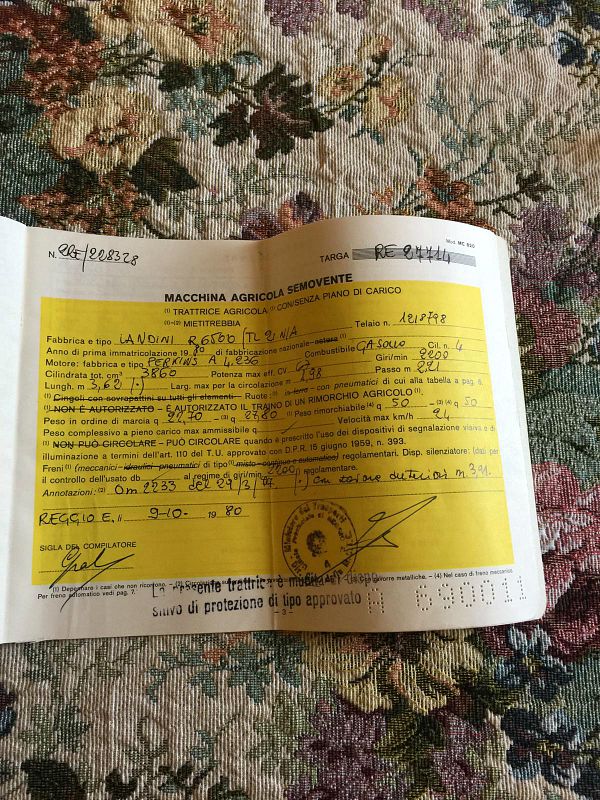 Mod. MC 820
N. RE/228328 TARGA RE 27714
MACCHINA AGRICOLA SEMOVENTE
(1) TRATTRICE AGRICOLA (1) CON/SENZA PIANO DI CARICO
(1)-(2) MIETITREBBIA
Fabbrica e tipo LANDINI R 6500 Telaio n. 1218798
Anno di prima immatricolazione 19 80 di fabbricazione nazionale - estera (1)
Motore: fabbrica e tipo PERKINS A 4.236 Combustibile GASOLIO Cil. n. 4
Cilindrata tot. cm³ 3860 Potenza max eff. CV Giri/min 2200
Lungh. m 3,62 Larg. max per la circolazione m 1,98 Passo m 2,21
(1) Cingoli con sovrapattini su tutti gli elementi - Ruote: (1) con pneumatici di cui alla tabella a pag. 6.
(1) NON È AUTORIZZATO - È AUTORIZZATO IL TRAINO DI UN RIMORCHIO AGRICOLO (1).
Peso in ordine di marcia q 27,70 (3) q 27,80 (1) Peso rimorchiabile (4) q 50 (3) (4) q 50
Peso complessivo a pieno carico max ammissibile q Velocità max km/h 24
(1) NON PUÒ CIRCOLARE - PUÒ CIRCOLARE quando è prescritto l'uso dei dispositivi di segnalazione visiva e di
illuminazione a termini dell'art. 110 del T.U. approvato con D.P.R. 15 giugno 1959, n. 393.
Freni (meccanici - idraulici - pneumatici) di tipo (1) misto - continuo e automatico) regolamentari. Disp. silenziatore: (dati per
il controllo dell'usato db al regime di giri/min 2200) regolamentare.
Annotazioni: (2) Om 2233 del 29/3/77. (.) Con zavorre anteriori m. 3,91.
REGGIO E. li 9-10- 19 80
SIGLA DEL COMPILATORE
(1) Depennare i casi che non ricorrono. zavorre metalliche. - (4) Nel caso di freno meccanico
Per freno automatico vedi pag. 7.
La presente trattrice è munita di dispo-
sitivo di protezione di tipo approvato
- 3 -
A 690011